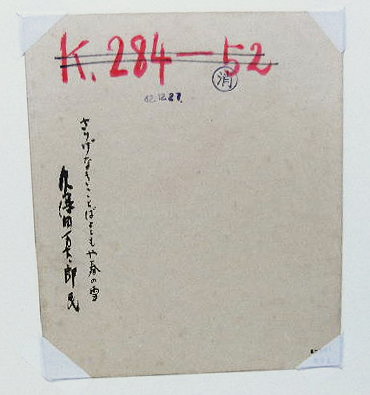 K.284—52
消
42.12.27.
さりげなきことばこそもや春の雪
久保田万太郎氏